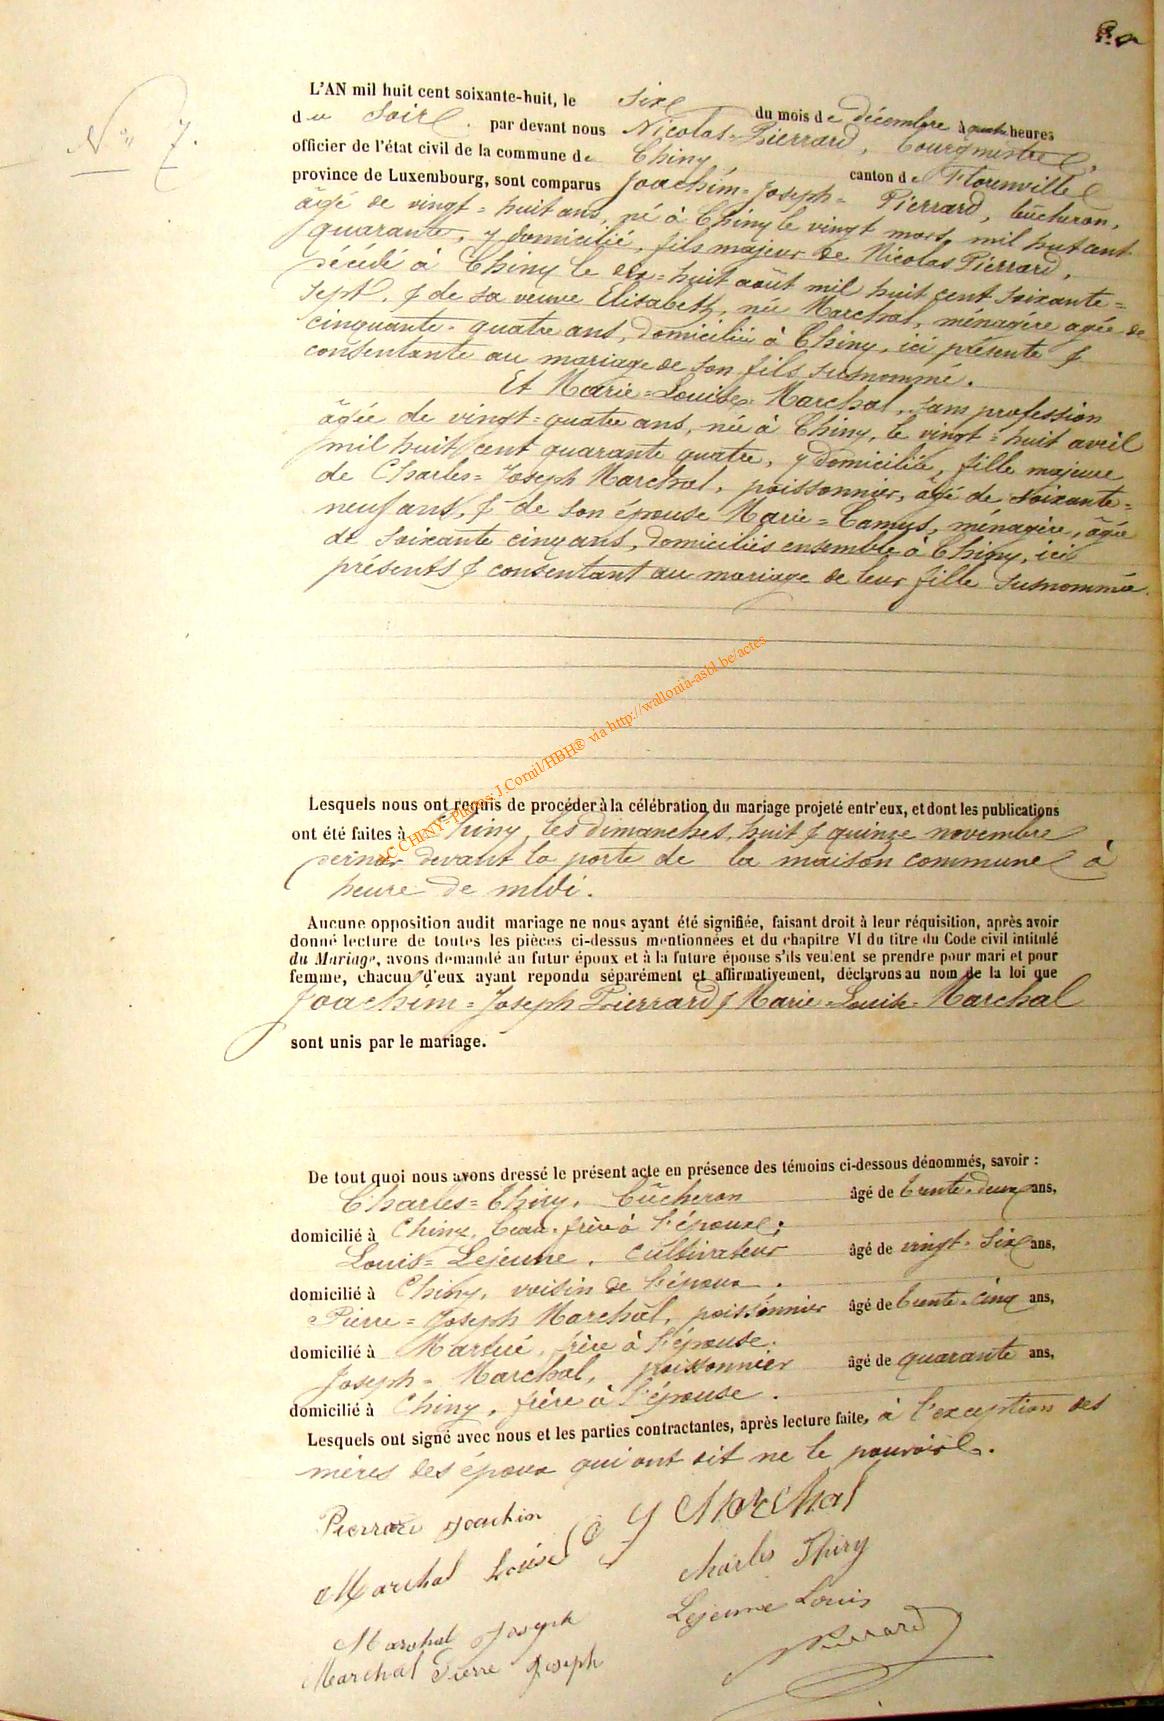 N° 7.
L'AN mil huit cent soixante-huit, le six du mois de décembre à quatre heures
du soir. par devant nous Nicolas-Pierrard, bourgmestre,
officier de l'état civil de la commune de Chiny, canton de Florenville
province de Luxembourg, sont comparus Joachim-Joseph-Pierrard, bûcheron,
âgé de vingt-huit ans, né à Chiny le vingt mars mil huit cent
quarante, y domicilié, fils majeur de Nicolas Pierrard,
décédé à Chiny le dix-huit août mil huit cent soixante-
sept, & de sa veuve Elisabeth, née Marchal, ménagère agée de
cinquante-quatre ans, domiciliée à Chiny, ici présente &
consentante au mariage de son fils susnommé.
Et Marie-Louise-Marchal, sans profession
âgée de vingt-quatre ans, née à Chiny, le vingt-huit avril
mil huit cent quarante quatre, y domiciliée, fille majeure
de Charles-Joseph Marchal, poissonnier, âgé de soixante-
neuf ans, & de son épouse Marie-Camus, ménagère, âgée
de soixante cinq ans, domiciliés ensemble à Chiny, ici
présents & consentant au mariage de leur fille susnommée.
AC CHINY - Photos J.Cornil/HBH® via http://wallonia-asbl.be/actes
Lesquels nous ont requis de procéder à la célébration du mariage projeté entr'eux, et dont les publications
ont été faites à Chiny, les dimanches, huit & quinze novembre
dernier devant la porte de la maison commune à
heure de midi.
Aucune opposition audit mariage ne nous ayant été signifiée, faisant droit à leur réquisition, après avoir
donné lecture de toutes les pièces ci-dessus mentionnées et du chapitre VI du titre du Code civil intitulé
du Mariage, avons demandé au futur époux et à la future épouse s'ils veulent se prendre pour mari et pour
femme, chacun d'eux ayant repondu séparément et affirmativement, déclarons au nom de la loi que
Joachim-Joseph Pierrard & Marie-Louise-Marchal
sont unis par le mariage.
De tout quoi nous avons dressé le présent acte en présence des témoins ci-dessous dénommés, savoir :
Charles-Thiry, bûcheron âgé de trente-deux ans,
domicilié à Chiny, beau-frère à l'épouse;
Louis-Lejeune, cultivateur âgé de vingt-six ans,
domicilié à Chiny, voisin de l'époux.
Pierre-Joseph Marchal, poissonnier âgé de trente-cinq ans,
domicilié à Martué, frère à l'épouse.
Joseph-Marchal, poissonnier âgé de quarante ans,
domicilié à Chiny, frère à l'épouse.
Lesquels ont signé avec nous et les parties contractantes, après lecture faite, à l'exception des
mères des époux qui ont dit ne le pouvoir.
Pierrard Joachin
C J Marchal
Marchal Louise
Charles Thiry
Lejeune Louis
Marchal Joseph
Pierrard
Marchal Pierre Joseph